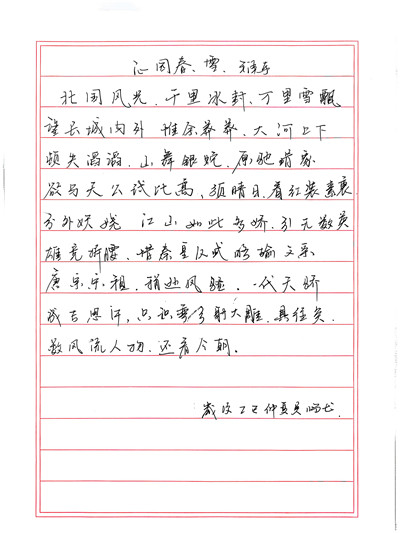 沁园春、雪
北国风光，千里冰封，万里雪飘
望长城内外 惟余莽莽，大河上下
顿失滔滔，山舞银蛇，原驰蜡象
欲与天公试比高，须晴日，看红装素裹
分外妖娆 江山如此多娇，引无数英
雄竞折腰，惜秦皇汉武略输文采
唐宗宋祖，稍逊风骚，一代天骄
成吉思汗，只识弯弓射大雕，俱往矣
数风流人物，还看今朝。
岁次丁巳仲夏